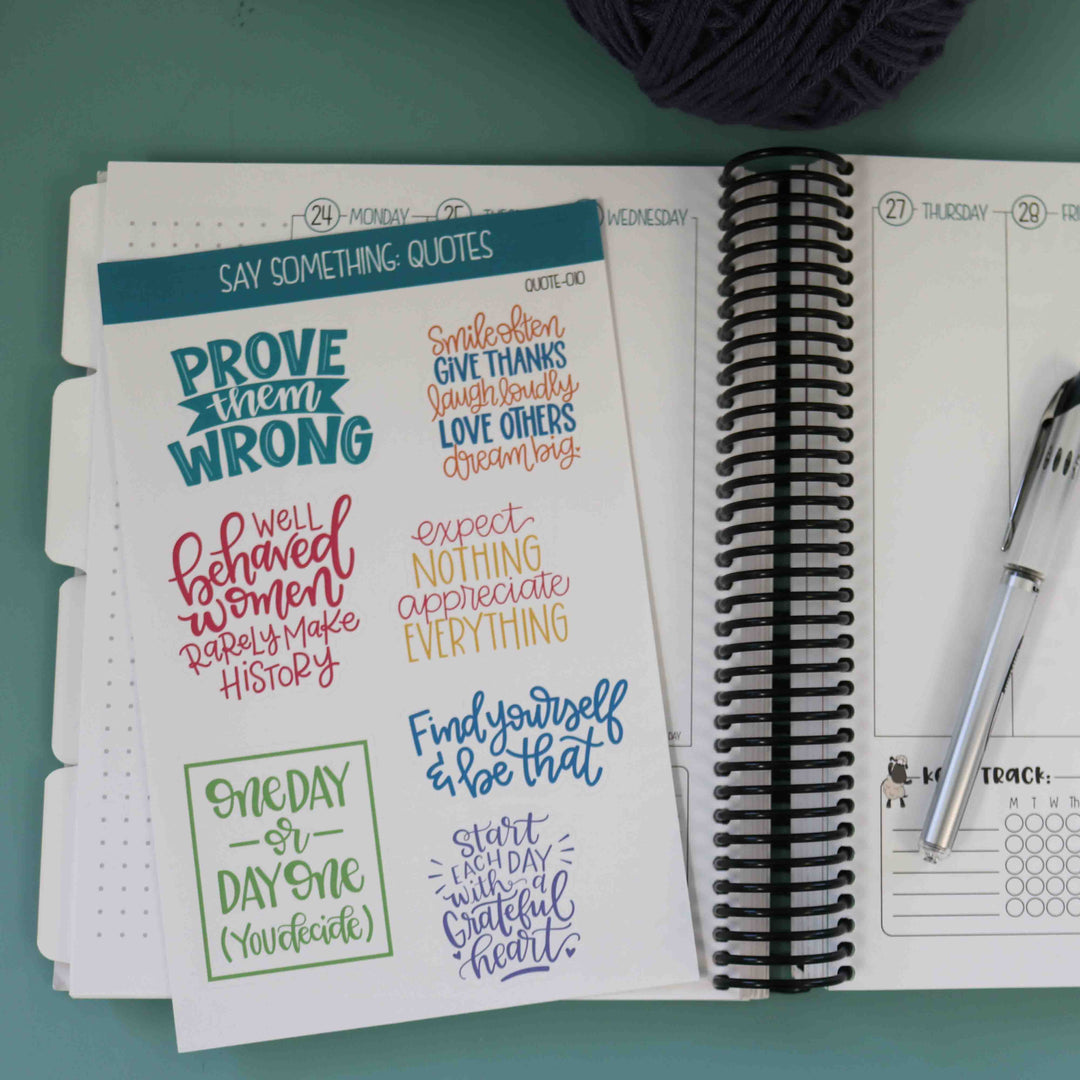 24 MONDAY 25
WEDNESDAY
27 THURSDAY 28
SAY SOMETHING: QUOTES
QUOTE-010
PROVE
them
WRONG
Smile often
GIVE THANKS
laugh loudly
LOVE OTHERS
dream big.
WELL
behaved
women
RARELY MAKE
HISTORY
expect
NOTHING
appreciate
EVERYTHING
Find yourself
& be that
ONE DAY
- or -
DAY ONE
(You decide)
start
EACH DAY
with a
Grateful
heart
TRACK:
M T W Th